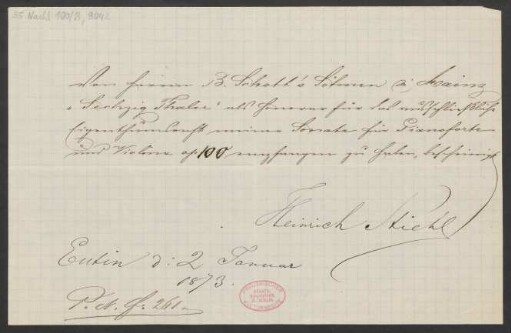 Von Herren B. Schott's Söhnen in Mainz
"Sechzig Thaler" als Honorar für das ausschließliche
Eigenthumsrecht meiner Sonate für Pianoforte
und Violine op 100 empfangen zu haben, bescheinigt
Heinrich Stiehl
Eutin d: 2 Januar
1873.